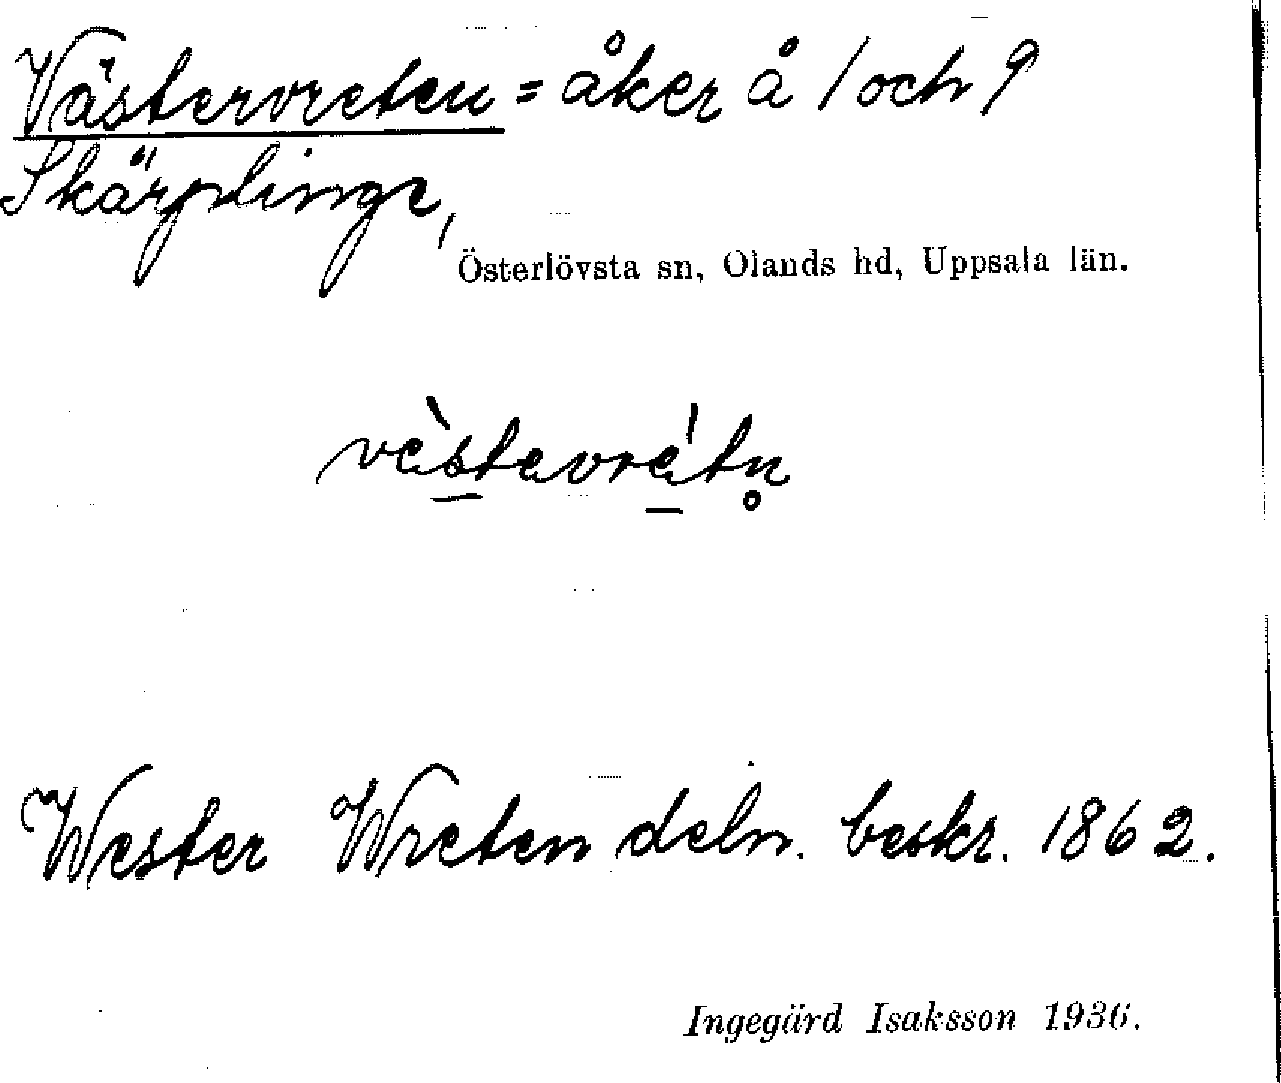 Västervreten = åker å 1 och 9
Skärplinge,
Österlövsta sn, Olands hd, Uppsala län.
vèstavrétn̥
Wester Wreten deln. beskr. 1862.
Ingegärd Isaksson 1936.